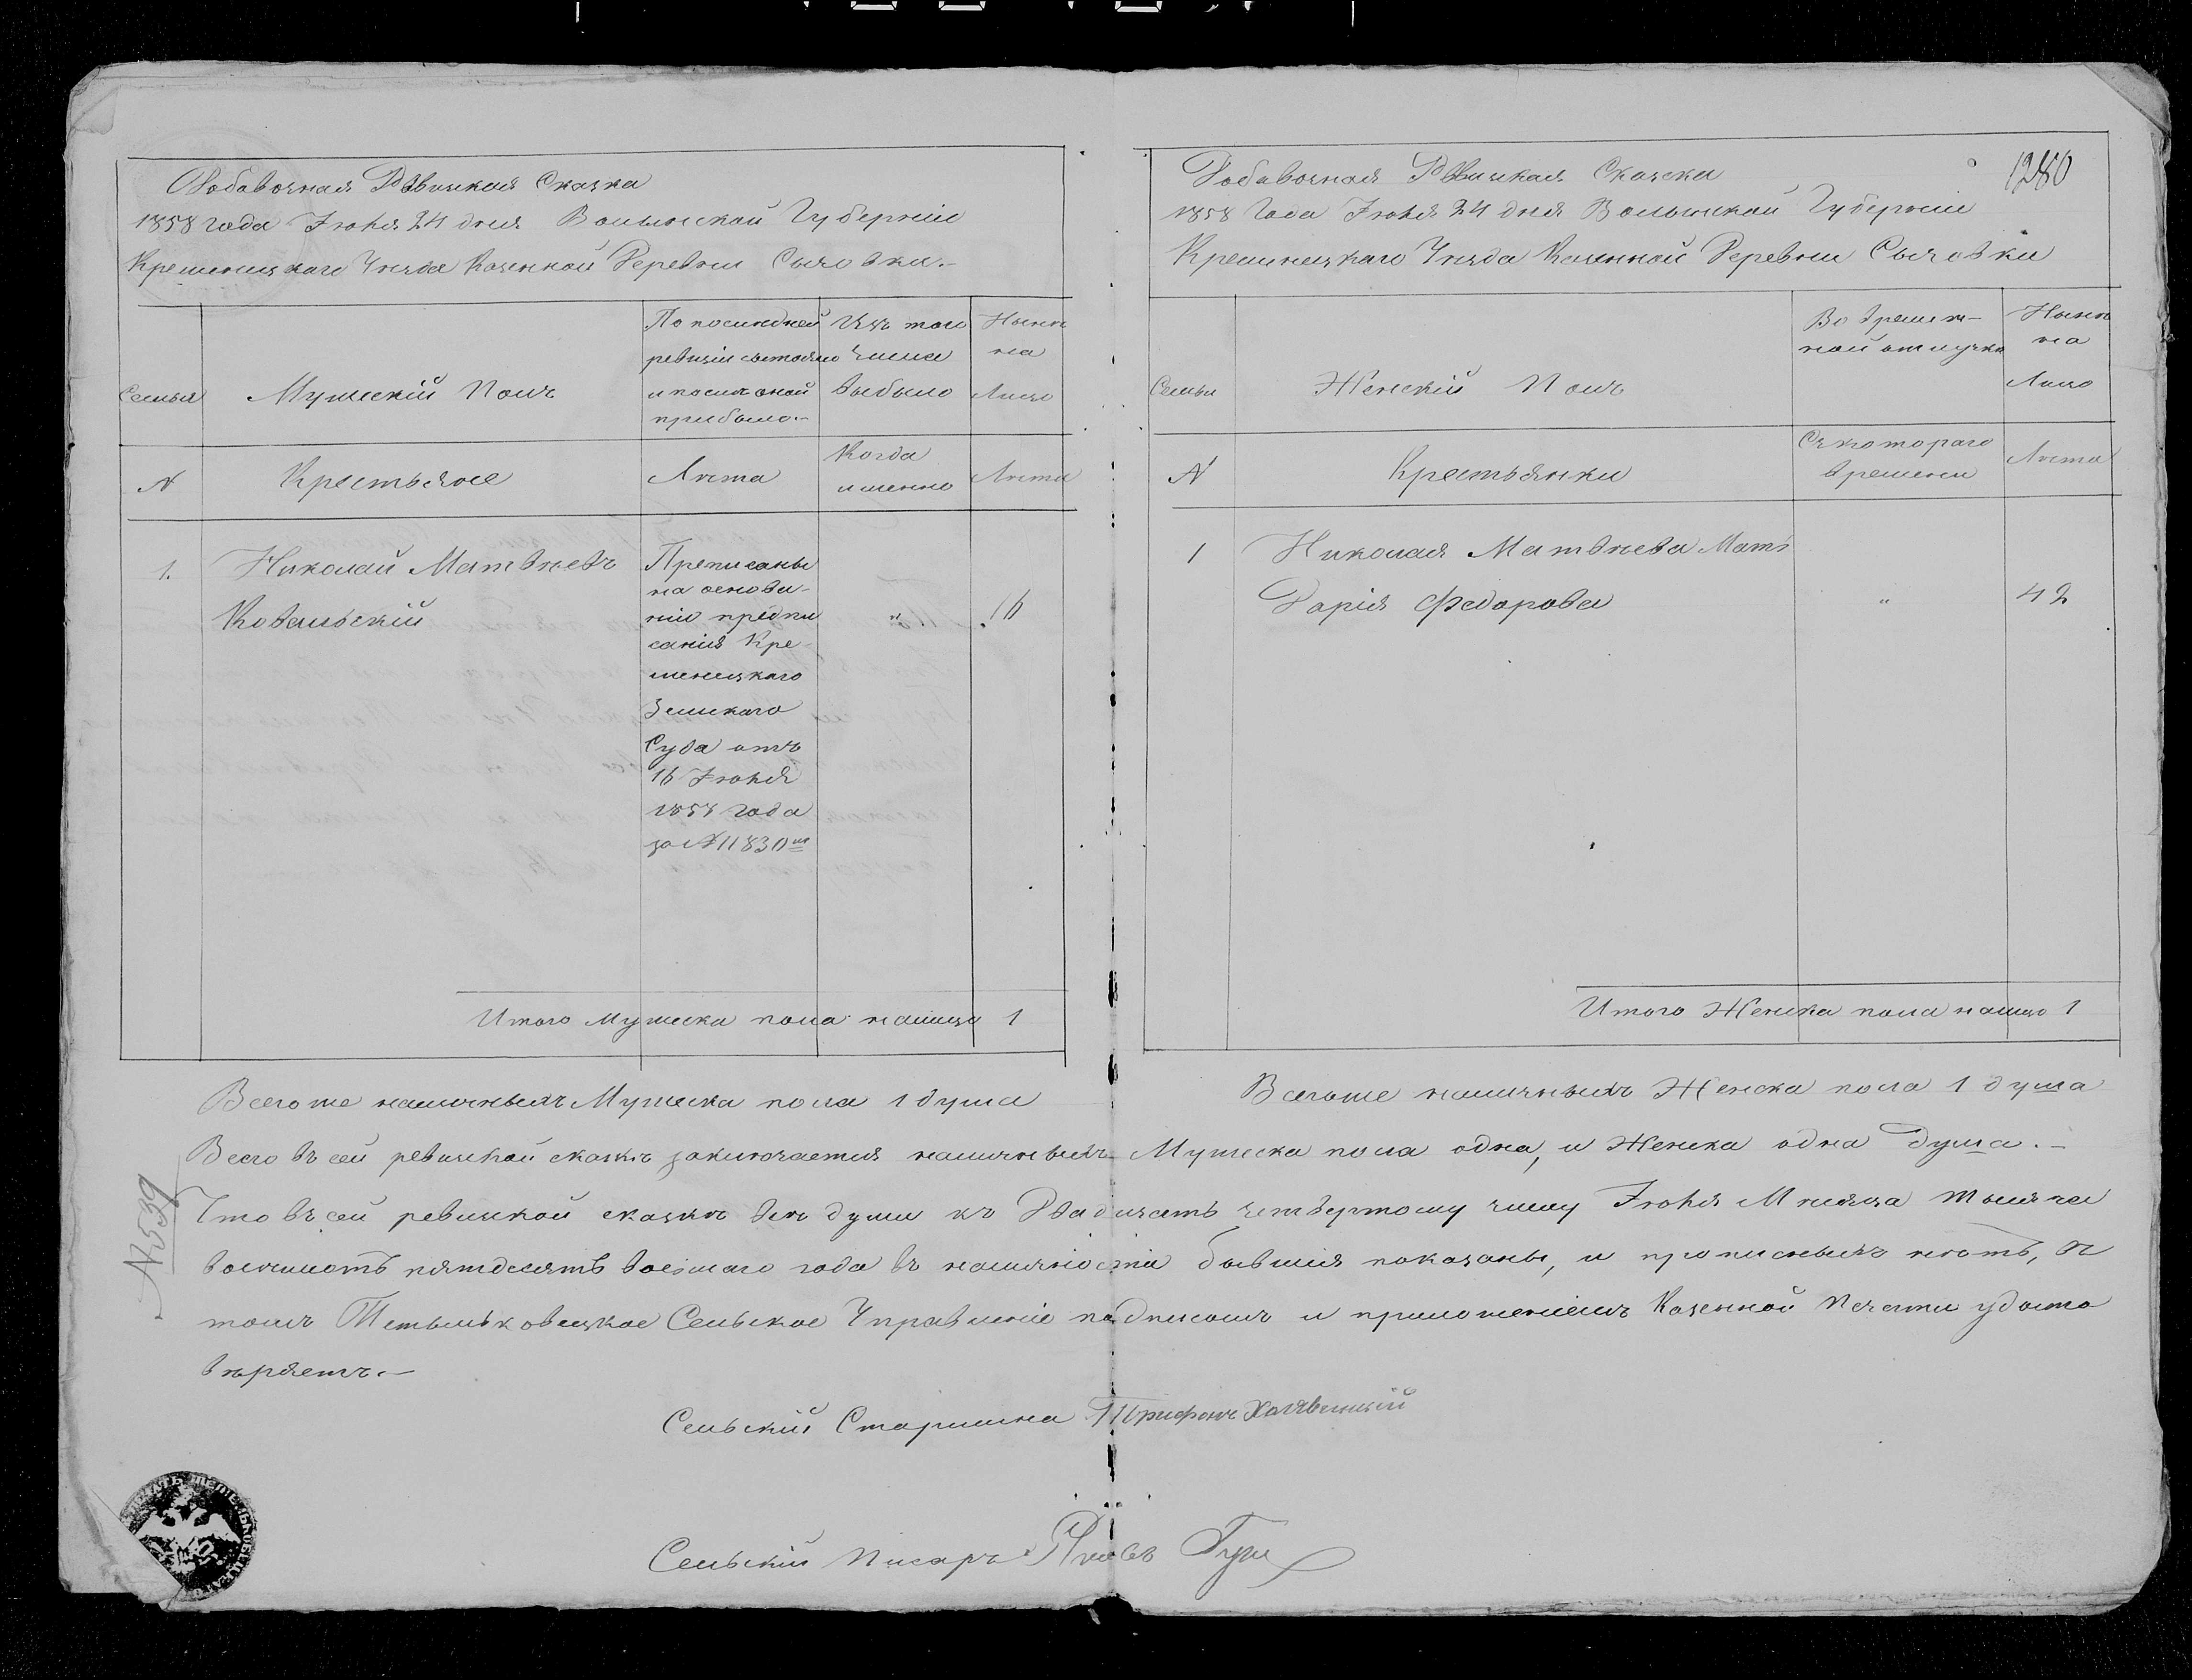 Добавочная Ревизская Сказка
1858 года Іюня 24 дня Волынской Губерніи
Кременецкаго Уѣзда Казенной Деревни Сычовки.-
Семья
Мужескій Полъ
По послѣдней
ревизіи состояло
и послѣ оной
прибыло.-
Изъ того
числа
выбыло
Нынѣ
на
Лицо
N
Крестьяне
Лѣта
Когда
именно
Лѣта
1.
Николай Матвѣевъ
Ковальскій
Преписаны
на основа-
ніи предпи
санія Кре-
менецкаго
Земскаго
Суда отъ
16 Іюня
1858 года
за N 11830
"
16
Итого Мужеска пола налицо 1
1280
Добавочная Ревизская Сказка
1858 Года Іюня 24 дня Волынской Губерніи
Кременецкаго Уѣзда Казенной Деревни Сычовки
Семьи
Женскій Полъ
Во времен-
ной отлучкѣ
Нынѣ
на
Лицо
N
Крестьянки
Съ котораго
времени
Лѣта
1
Николая Матвѣева Мать
Дарія Федорова
"
42
Итого Женска пола налицо 1
Всего же наличныхъ Мужеска пола 1 душа
Всего же наличныхъ Женска пола 1 душа
Всего въ сей ревизской сказкѣ заключается наличныхъ Мужеска пола одна, и Женска одна душа.-
Что въ сей ревизской сказкѣ всѣ души къ Двадцать четвертому числу Іюня Мѣсяца тысяча
восемьсотъ пятдесятъ восьмаго года въ наличности бывшія показаны, и прописныхъ нѣтъ, въ
томъ Тетыльковецкое Сельское Управленіе подписомъ и приложеніемъ Казенной Печати удосто
вѣряетъ.-
N 539
Сельскій Старшина Трифонъ
Сельскій Писарь Яковъ